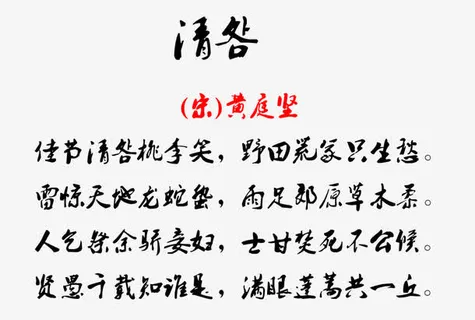 清咎
(宋)黄庭坚
佳节清咎桃李笑，野田荒冢只生愁。
雷惊天地龙蛇蛰，雨足郊原草木柔。
人乞祭余骄妾妇，士甘焚死不公候。
贤愚千载知谁是，满眼蓬蒿共一丘。